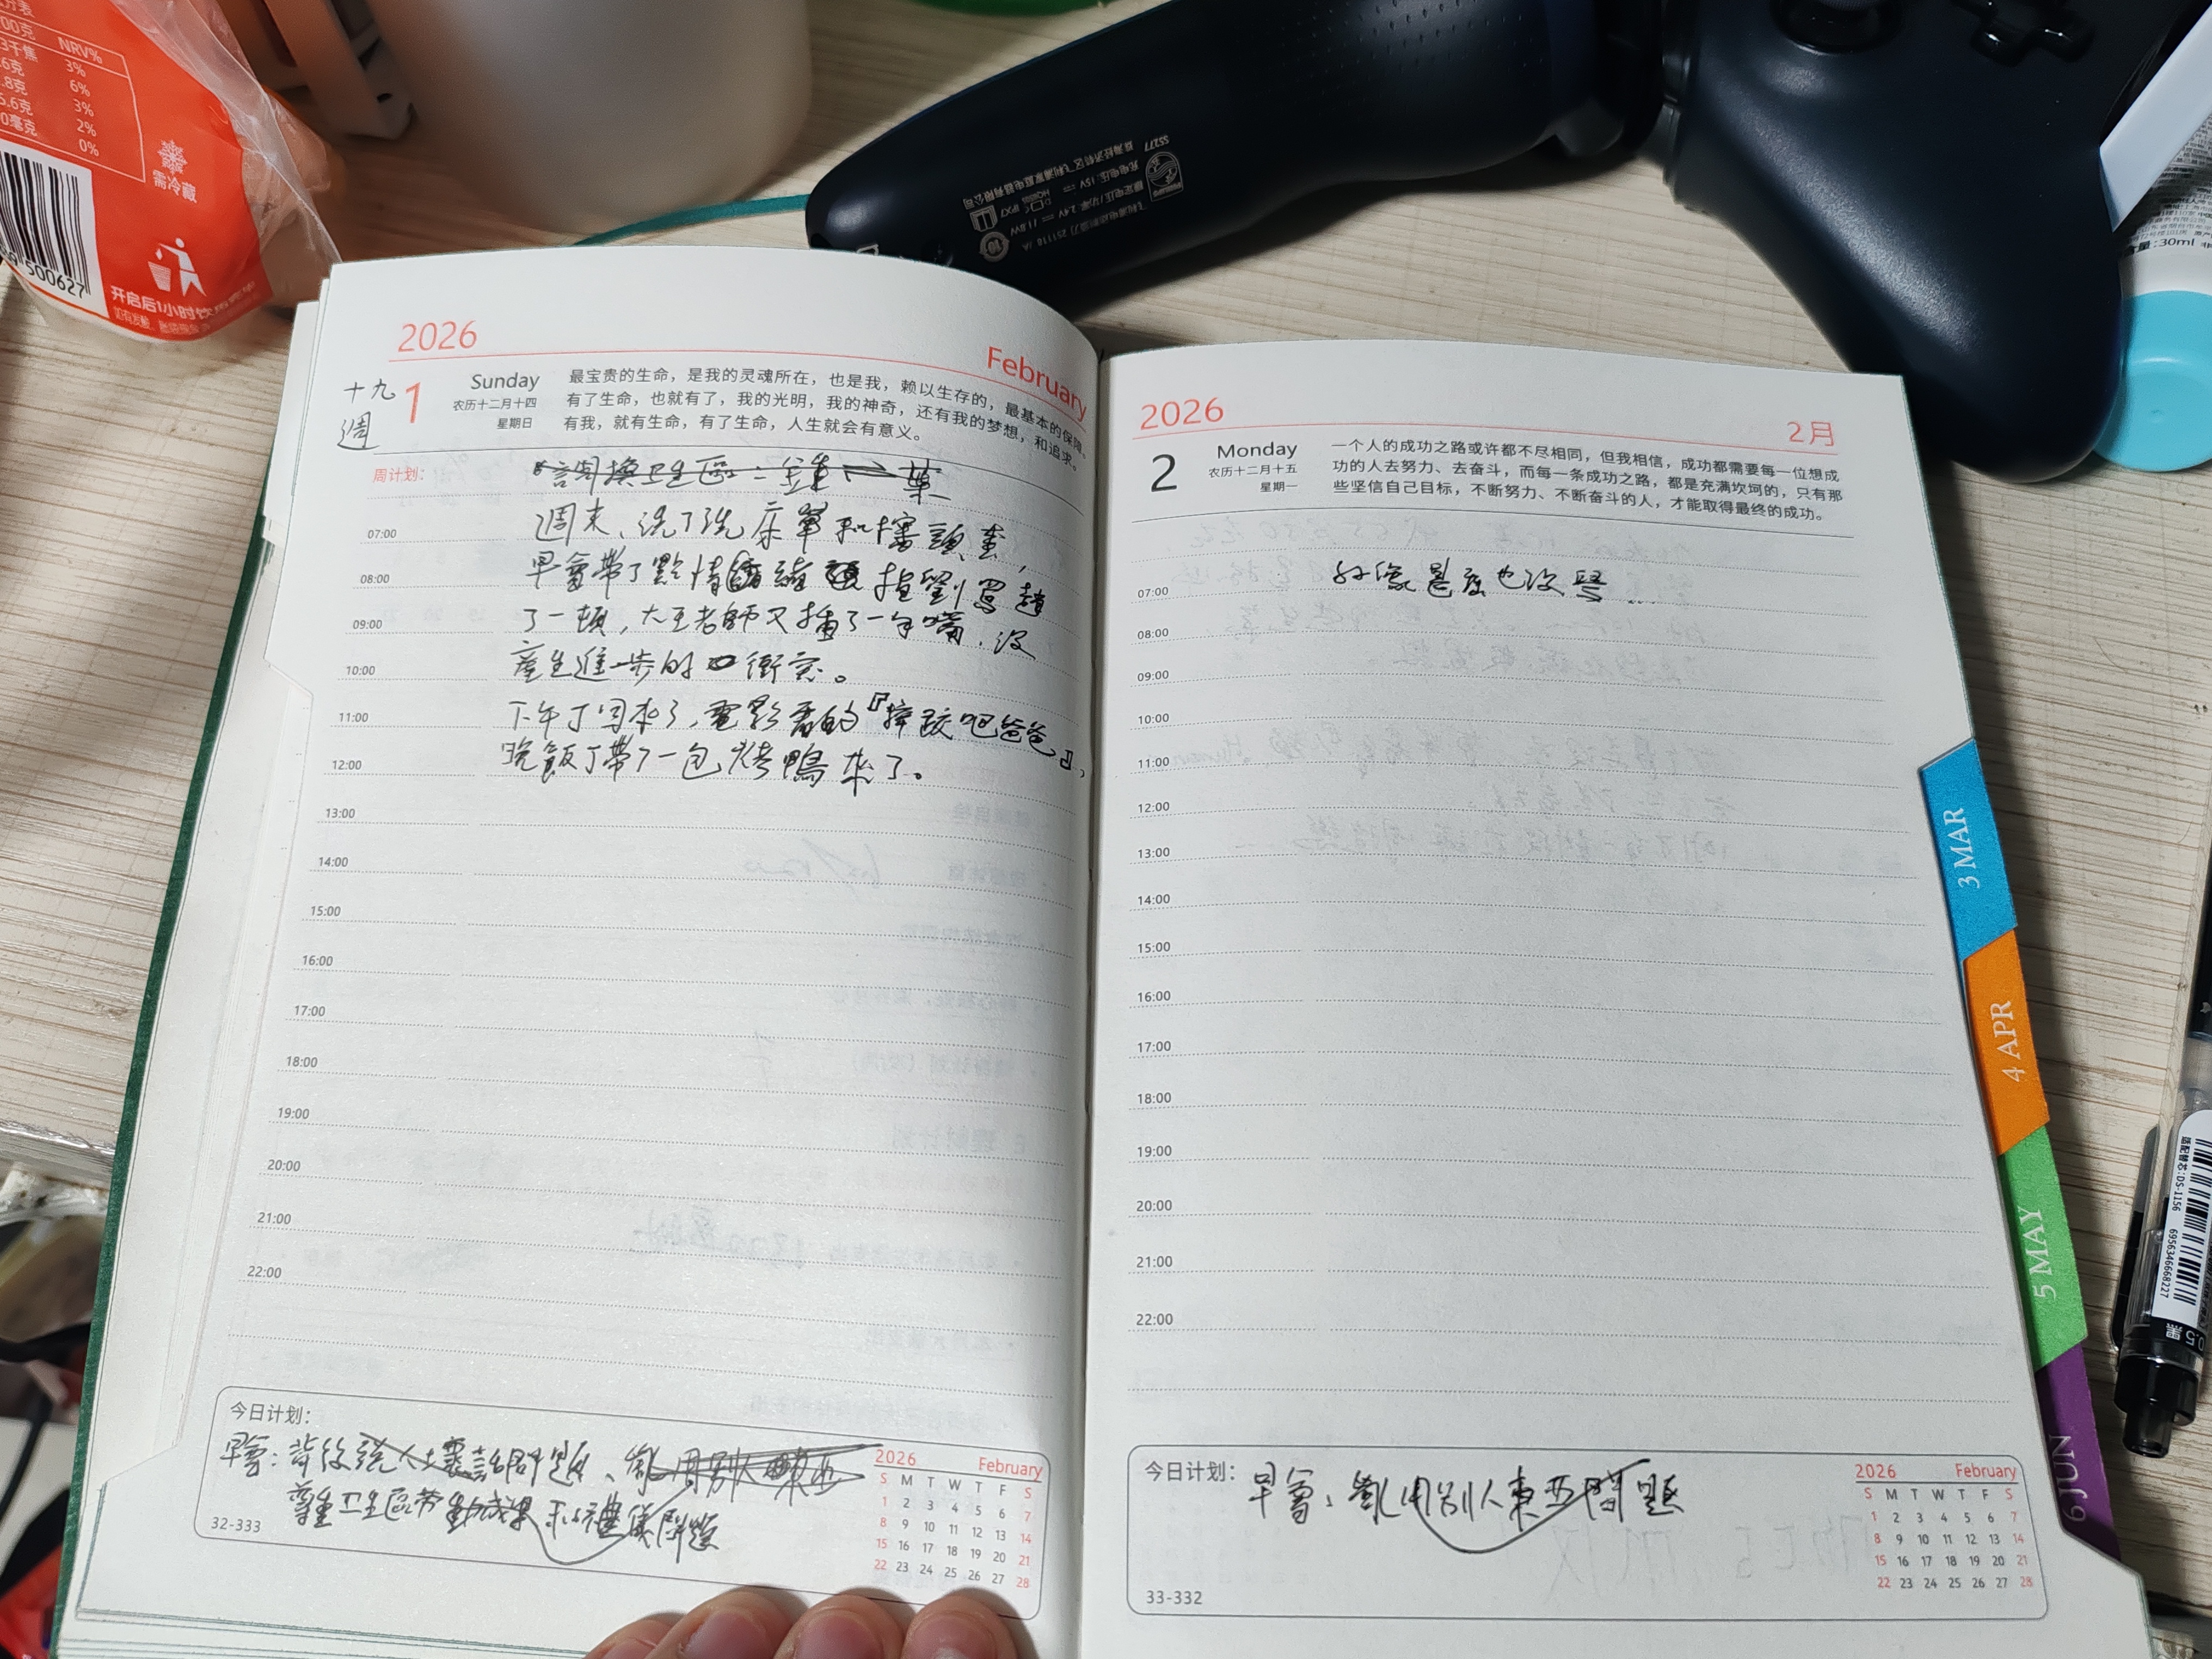 NRV%
3%
6%
3%
2%
0%
需冷藏
500627
开启后1小时饮用完毕
SS277
30ml
2026
February
十九
週
1
Sunday
农历十二月十四
星期日
最宝贵的生命，是我的灵魂所在，也是我，赖以生存的，最基本的保障。
有了生命，也就有了，我的光明，我的神奇，还有我的梦想，和追求。
有我，就有生命，有了生命，人生就会有意义。
周计划：
週末、洗了洗床單和枕頭套，
早會帶了點情緒
了一頓，大王老師又插了一句嘴，沒
產生進一步的衝突。
下午丁回來了，電影看的『摔跤吧爸爸』，
晚飯丁帶了一包烤鴨來了。
07:00
08:00
09:00
10:00
11:00
12:00
13:00
14:00
15:00
16:00
17:00
18:00
19:00
20:00
21:00
22:00
今日计划：
早會：背後說人壞話問題、亂用別人東西
尊重卫生區劳動成果和禮儀問題
32-333
2026 February
S M T W T F S
1 2 3 4 5 6 7
8 9 10 11 12 13 14
15 16 17 18 19 20 21
22 23 24 25 26 27 28
2026
2月
2
Monday
农历十二月十五
星期一
一个人的成功之路或许都不尽相同，但我相信，成功都需要每一位想成
功的人去努力、去奋斗，而每一条成功之路，都是充满坎坷的，只有那
些坚信自己目标，不断努力、不断奋斗的人，才能取得最终的成功。
好像甚麼也沒
07:00
08:00
09:00
10:00
11:00
12:00
13:00
14:00
15:00
16:00
17:00
18:00
19:00
20:00
21:00
22:00
今日计划：
早會：亂用別人東西問題
33-332
2026 February
S M T W T F S
1 2 3 4 5 6 7
8 9 10 11 12 13 14
15 16 17 18 19 20 21
22 23 24 25 26 27 28
3 MAR
4 APR
5 MAY
6 JUN
适配替芯:DS-1156
6956346668227
黑 0.5